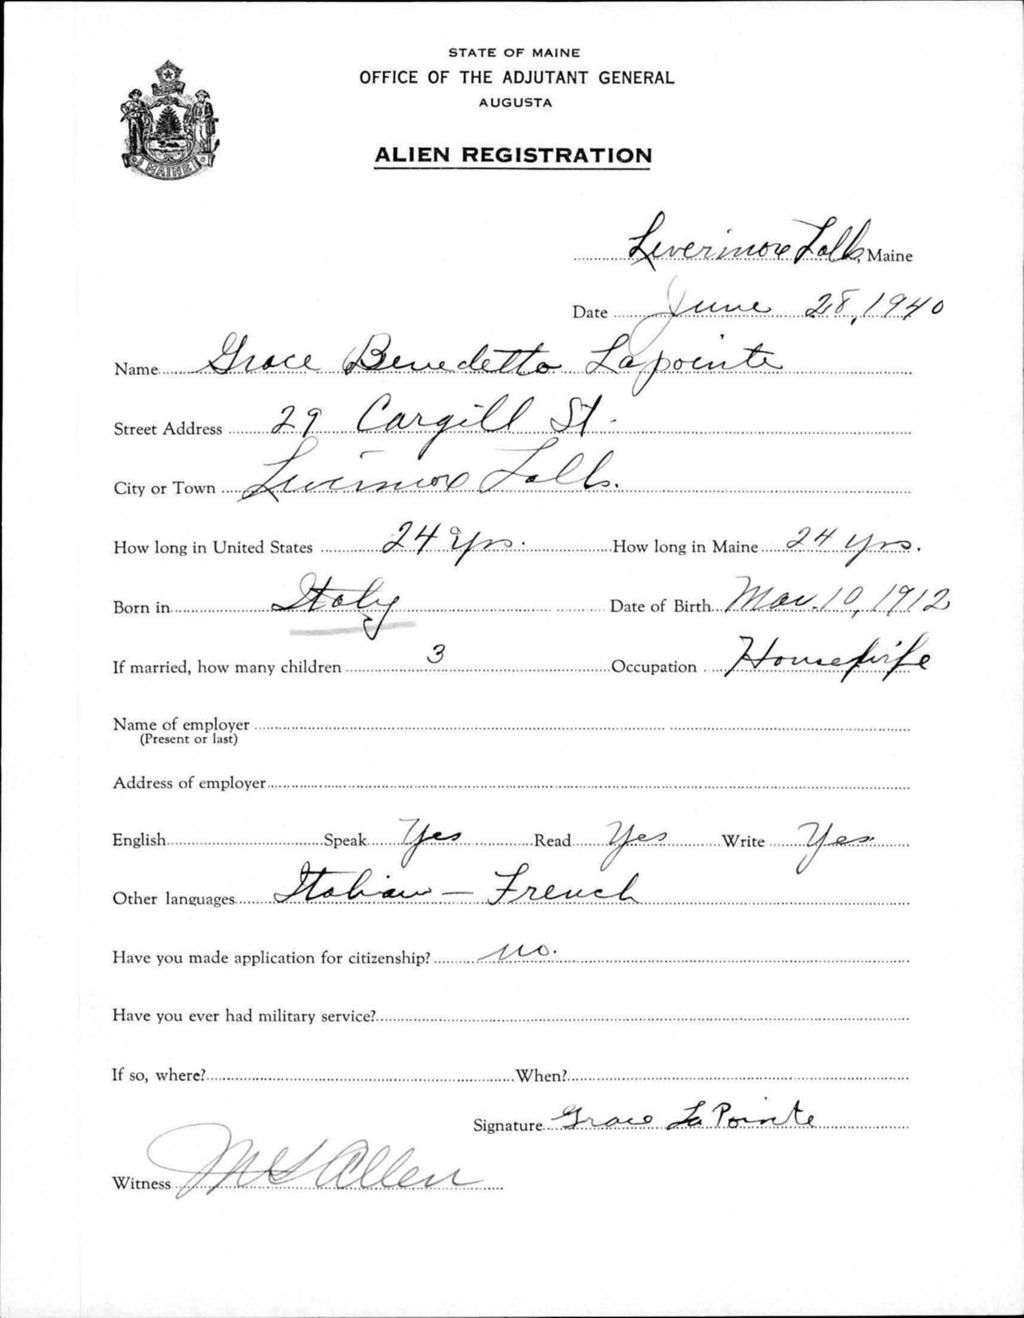 STATE OF MAINE
OFFICE OF THE ADJUTANT GENERAL
AUGUSTA
ALIEN REGISTRATION
MAINE
Livermore Falls, Maine
Date June 28, 1940
Name Grace Benedetto Lapointe
Street Address 29 Cargill St.
City or Town Livermore Falls.
How long in United States 24 yrs. How long in Maine 24 yrs.
Born in Italy Date of Birth Mar. 10, 1912
If married, how many children 3 Occupation Housewife
Name of employer
(Present or last)
Address of employer
English Speak Yes Read Yes Write Yes
Other languages Italian – French
Have you made application for citizenship? no.
Have you ever had military service?
If so, where? When?
Signature Grace La Pointe
Witness Allen